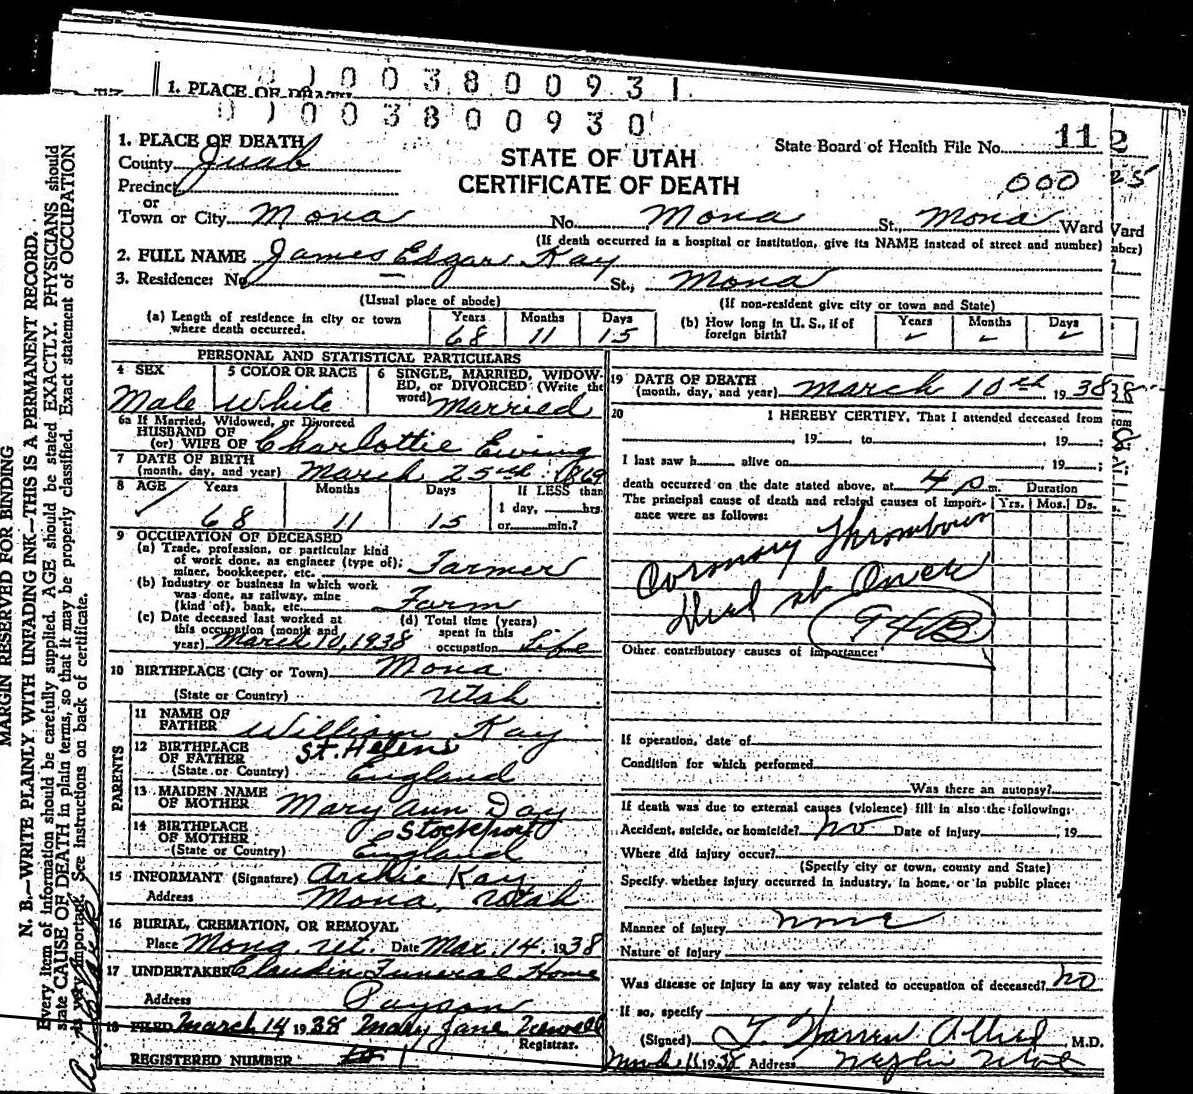 1. PLACE OF DEATH
0 1 0 0 3 8 0 0 9 3 1
0 1 0 0 3 8 0 0 9 3 0
1. PLACE OF DEATH
County Juab
Precinct
or
Town or City Mona No. Mona St., Mona Ward
STATE OF UTAH
CERTIFICATE OF DEATH
State Board of Health File No. 11
000
(If death occurred in a hospital or institution, give its NAME instead of street and number)
2. FULL NAME James Edgar Kay
3. Residence: No. — St., Mona
(Usual place of abode) (If non-resident give city or town and State)
(a) Length of residence in city or town where death occurred. Years 68 Months 11 Days 15
(b) How long in U. S., if of foreign birth? Years - Months - Days -
PERSONAL AND STATISTICAL PARTICULARS
4 SEX Male
5 COLOR OR RACE White
6 SINGLE, MARRIED, WIDOWED, or DIVORCED (Write the word) Married
6a If Married, Widowed, or Divorced
HUSBAND OF
(or) WIFE OF Charlottie Ewing
7 DATE OF BIRTH
(month, day, and year) March 25th 1869
8 AGE Years 68 Months 11 Days 15 If LESS than
1 day, hrs.
or min.?
9 OCCUPATION OF DECEASED
(a) Trade, profession, or particular kind
of work done, as engineer (type of);
miner, bookkeeper, etc. Farmer
(b) Industry or business in which work
was done, as railway, mine
(kind of), bank, etc. Farm
(c) Date deceased last worked at
this occupation (month and
year) March 10, 1938
(d) Total time (years)
spent in this
occupation Life
10 BIRTHPLACE (City or Town) Mona
(State or Country) Utah
PARENTS
11 NAME OF
FATHER William Kay
12 BIRTHPLACE
OF FATHER St. Helens
(State or Country) England
13 MAIDEN NAME
OF MOTHER Mary Ann Day
14 BIRTHPLACE
OF MOTHER Stockport
(State or Country) England
15 INFORMANT (Signature) Archie Kay
Address Mona, Utah
16 BURIAL, CREMATION, OR REMOVAL
Place Mona, Ut. Date Mar. 14. 1938
17 UNDERTAKER Funeral Home
Address Payson
18 FILED March 14 1938 Mary Jane Newell
Registrar.
REGISTERED NUMBER 1
19 DATE OF DEATH
(month, day, and year) March 10th 1938
20 I HEREBY CERTIFY, That I attended deceased from
, 19 to , 19 ;
I last saw h alive on , 19 ;
death occurred on the date stated above, at 4 p m.
The principal cause of death and related causes of importance were as follows:
Duration
Yrs. Mos. Ds.
Coronary Thrombosis
Died at Once
94B
Other contributory causes of importance:
If operation, date of
Condition for which performed
Was there an autopsy?
If death was due to external causes (violence) fill in also the following:
Accident, suicide, or homicide? no Date of injury , 19
Where did injury occur?
(Specify city or town, county and State)
Specify whether injury occurred in industry, in home, or in public place:
Manner of injury none
Nature of injury
Was disease or injury in any way related to occupation of deceased? no
If so, specify
(Signed) T. Warren Allred M.D.
March 11 1938 Address
MARGIN RESERVED FOR BINDING
N. B.—WRITE PLAINLY WITH UNFADING INK—THIS IS A PERMANENT RECORD.
Every item of information should be carefully supplied. AGE should be stated EXACTLY. PHYSICIANS should
state CAUSE OF DEATH in plain terms, so that it may be properly classified. Exact statement of OCCUPATION
is very important. See instructions on back of certificate.
2
25
Ward